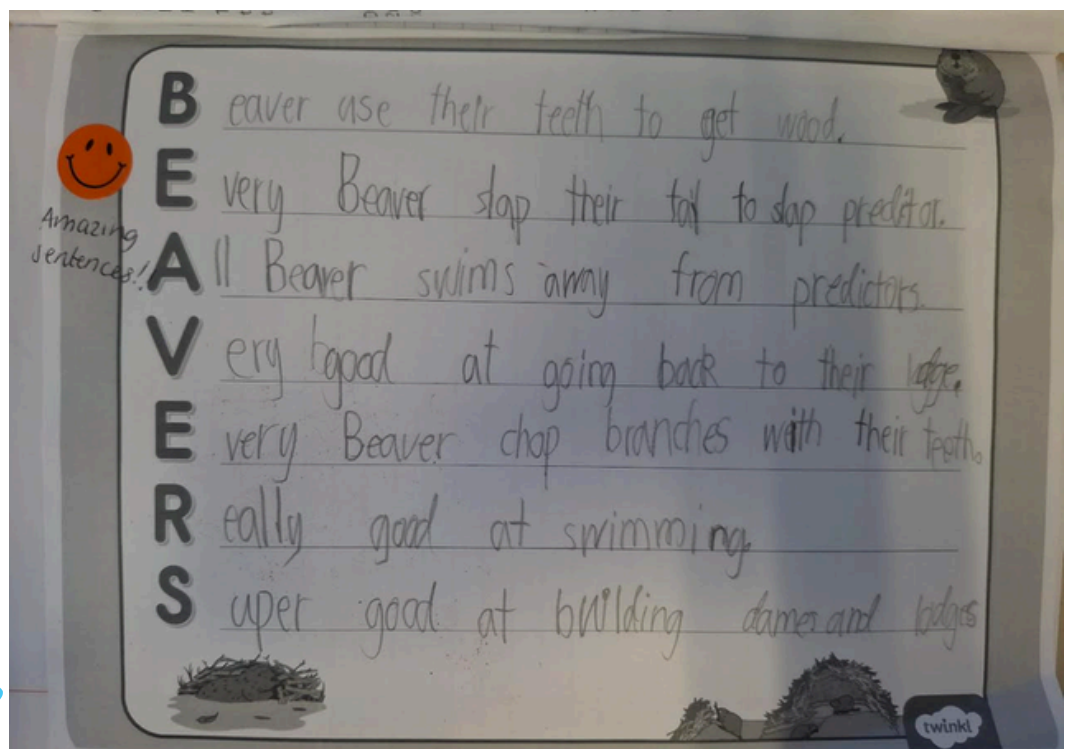 Beaver use their teeth to get wood.
Every Beaver slap their tail to slap preditor.
Amazing
sentences!!
All Beaver swims away from predictors.
Very good at going back to their lodge.
Every Beaver chop branches with their teeth.
Really good at swimming.
Super good at building dames and lodges
twinkl